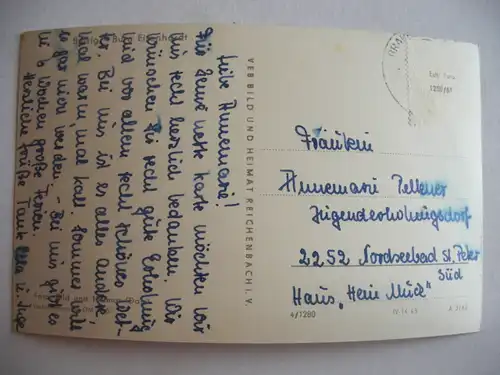 Burg Falkenstein
Liebe Annemarie!
Für Deine nette Karte möchten wir
uns recht herzlich bedanken. Wir
wünschen Dir recht gute Erholung
und vor allem recht schönes Wet-
ter. Bei uns ist es alles anders
mal warm mal kalt. Sommer will
es gar nicht werden - Bei uns gibt es
in 6 Wochen große Ferien.
Herzliche Grüße Tante
VEB BILD UND HEIMAT REICHENBACH i. V.
Fräulein
Annemarie Pellener
Jugenderholungsdorf
2252 Nordseebad St. Peter
Süd
Haus „Hein Mück"
4/1280